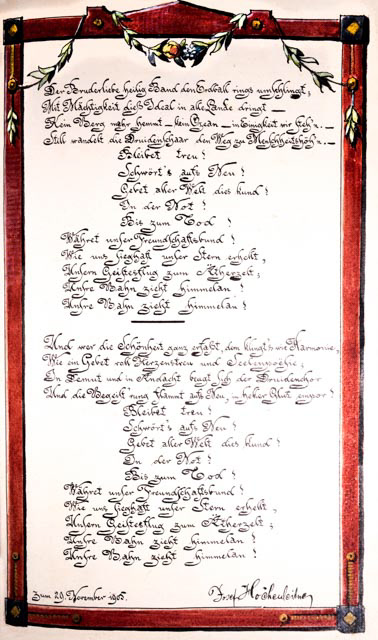 Der Bruderliebe heilig Band den Erdball rings umschlingt;
Mit Mächtigkeit dieß Ideal in alle Lande dringt —
Kein Berg mehr hemmt — kein Ozean — in Einigkeit wir steh'n. —
Still wandelt die Druidenschaar den Weg zu Menschheitshöh'n. —
Bleibet treu!
Schwört's aufs Neu!
Gebet aller Welt dies kund!
In der Not!
Bis zum Tod!
Währet unser Freundschaftsbund!
Wie uns sieghaft unser Stern erhellt,
Unsern Geistesflug zum Ätherzelt;
Unsre Bahn zieht himmelan!
Unsre Bahn zieht himmelan!
Und wer die Schönheit ganz erfaßt, dem klingt's wie Harmonie,
Wie ein Gebet voll Herzenstreu und Seelenpoesie;
In Demut und in Andacht beugt sich der Druidenchor
Und die Begeisterung flammt aufs Neu, in hoher Glut empor!
Bleibet treu!
Schwört's aufs Neu!
Gebet aller Welt dies kund!
In der Not!
Bis zum Tod!
Währet unser Freundschaftsbund!
Wie uns sieghaft unser Stern erhellt,
Unsern Geistesflug zum Ätherzelt;
Unsre Bahn zieht himmelan!
Unsre Bahn zieht himmelan!
Zum 29. November 1905.
Josef Hochenleitner